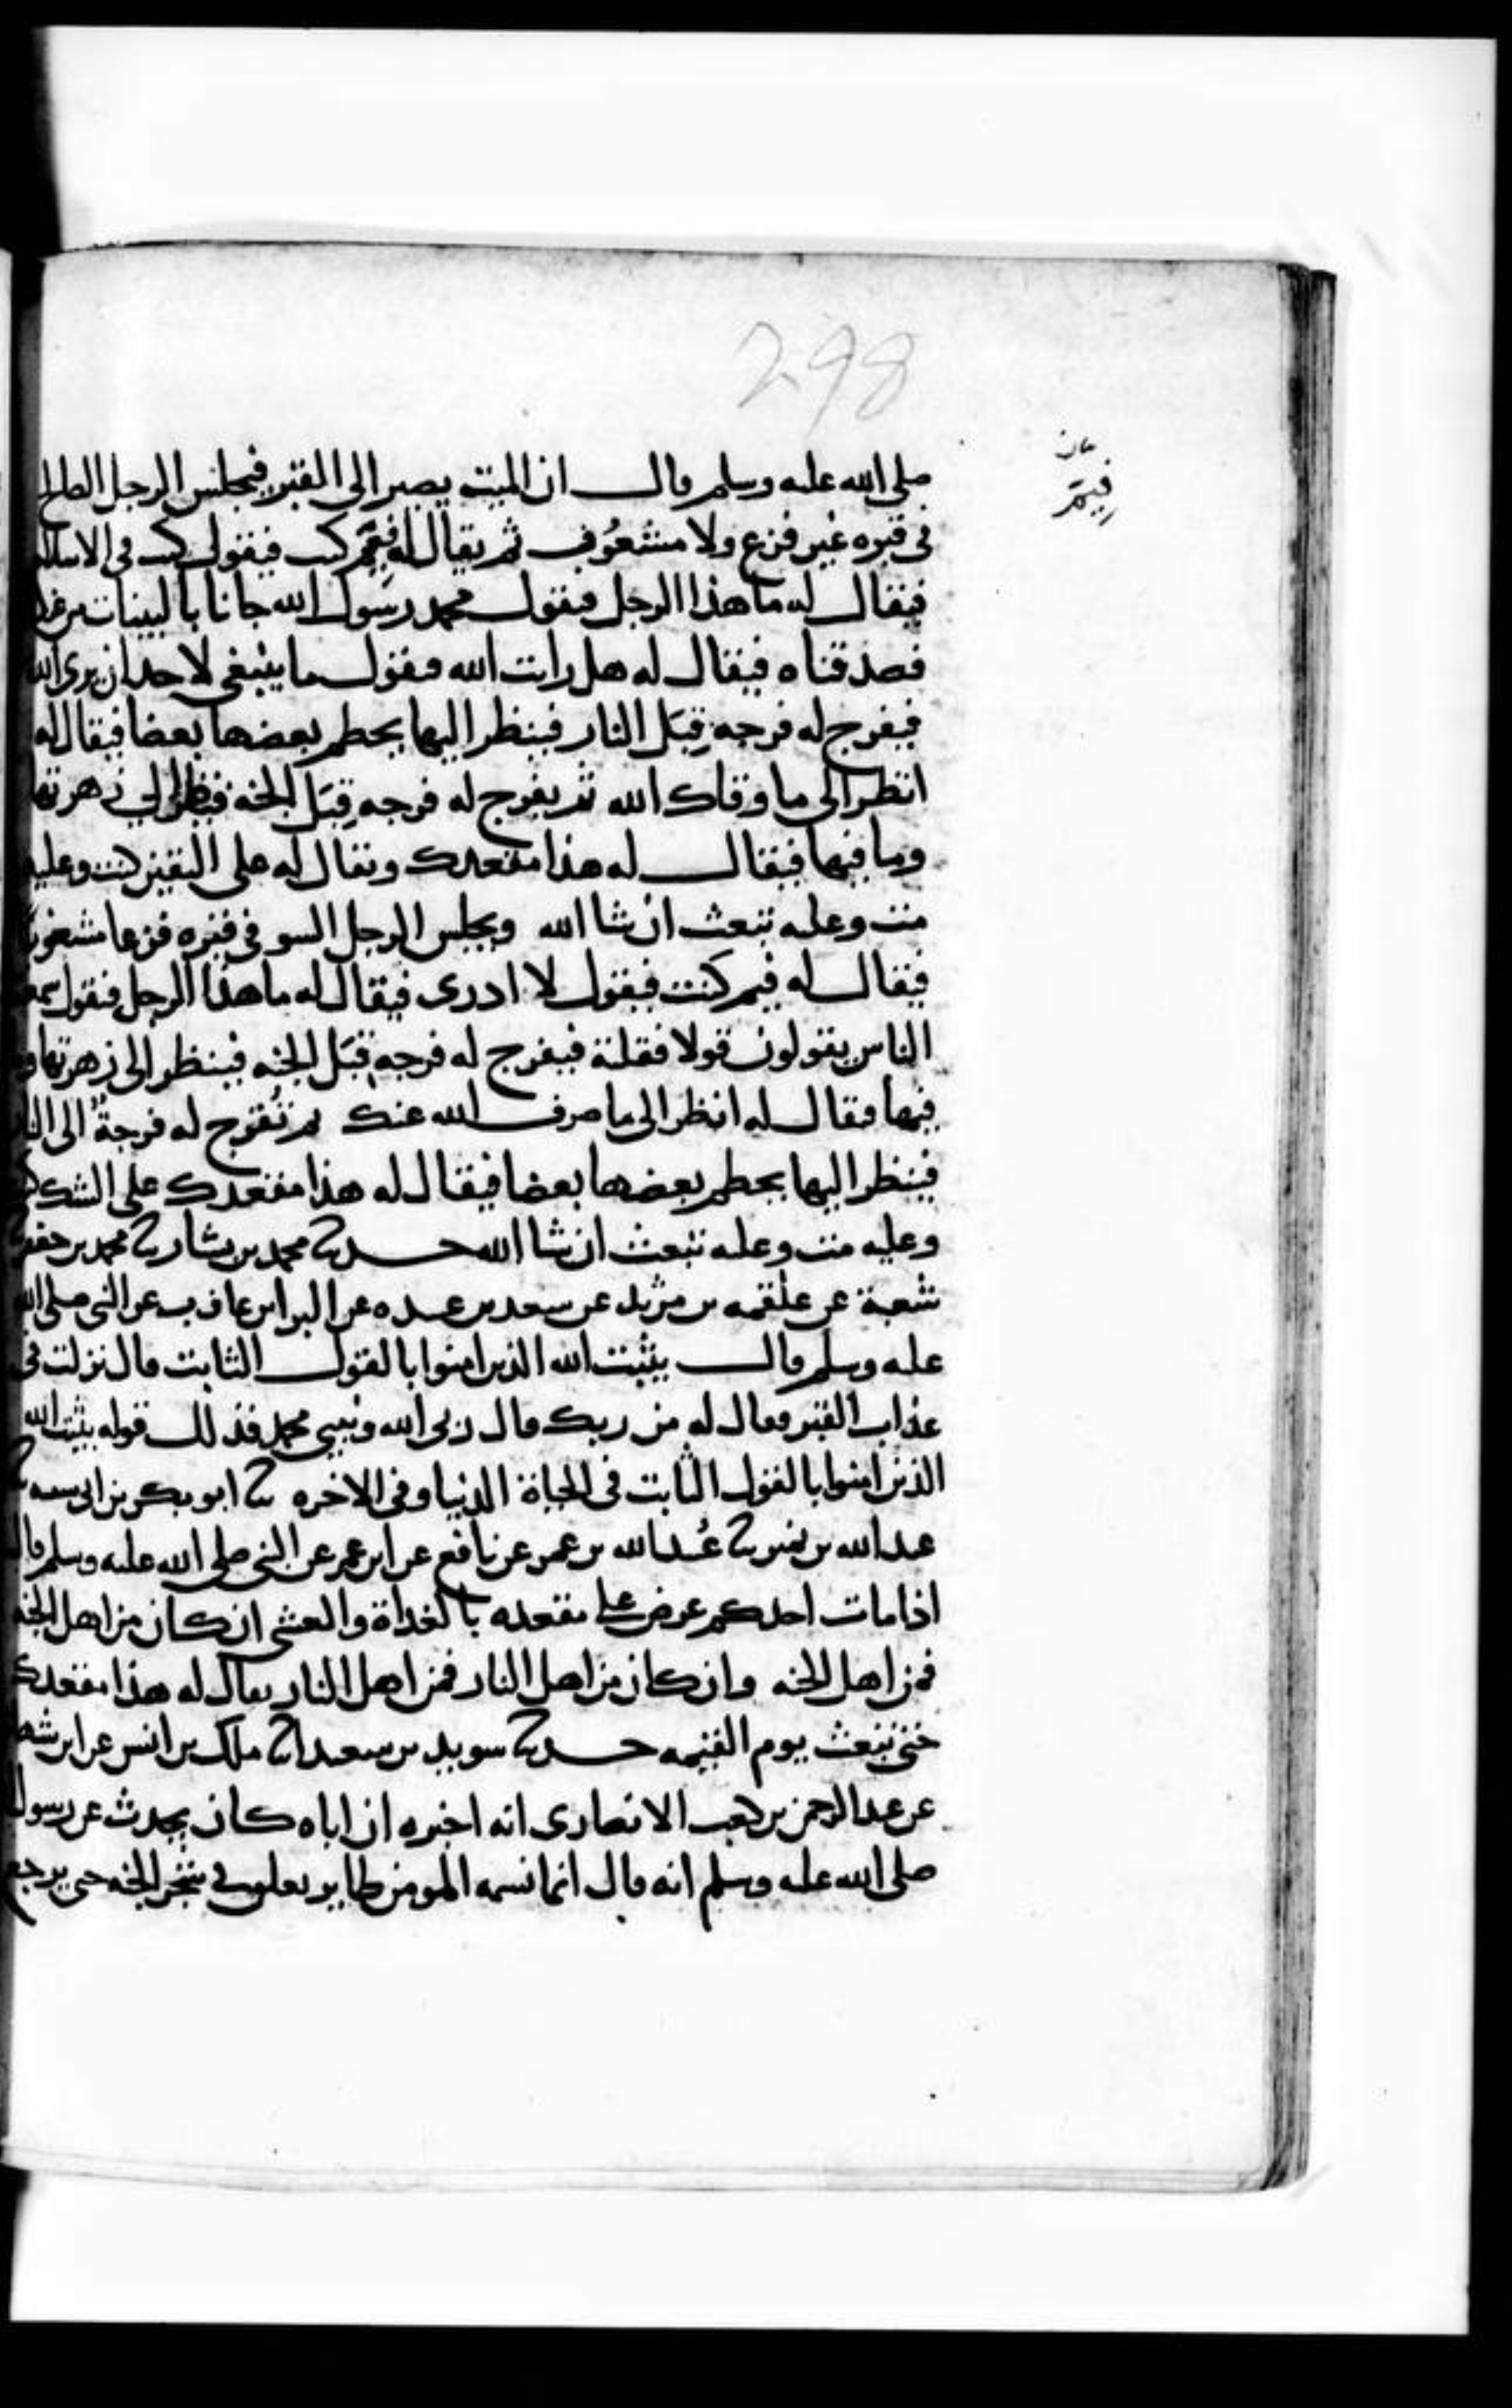 298
فيم
صلى الله عليه وسلم قال ان الميت يصير الى القبر فيجلس الرجل الصالح
في قبره غير فزع ولا مشعوف ثم يقال له فيم كنت فيقول كنت في الاسلام
فيقال له ما هذا الرجل فيقول محمد رسول الله جانا بالبينات من عند
فصدقناه فيقال له هل رايت الله فيقول ما ينبغي لاحد ان يرى الله
فيفرج له فرجه قِبَل النار فينظر اليها يحطم بعضها بعضا فيقال له
انظر الى ما وقاك الله ثم يفرج له فرجه قِبَل الجنه فينظر الى زهرتها
وما فيها فيقال له هذا مقعدك ويقال له على اليقين كنت وعليه
مت وعليه تبعث ان شا الله ويجلس الرجل السو في قبره فزعا مشعوفا
فيقال له فيم كنت فيقول لا ادرى فيقال له ما هذا الرجل فيقول سمعت
الناس يقولون قولا فقلته فيفرج له فرجه قِبَل الجنه فينظر الى زهرتها وما
فيها فيقال له انظر الى ما صرف الله عنك ثم يُفرج له فرجةٌ الى النار
فينظر اليها يحطم بعضها بعضا فيقال له هذا مقعدك على الشك
وعليه مت وعليه تبعث ان شا الله حدثنا محمد بن بشار ثنا محمد بن جعفر
شعبة عن علقمه بن مرثد عن سعد بن عبيده عن البرا بن عازب عن النبي صلى الله
عليه وسلم قال يثبت الله الذين امنوا بالقول الثابت قال نزلت في
عذاب القبر فيقال له من ربك قال ربي الله ونبيي محمد فذلك قوله يثبت الله
الذين امنوا بالقول الثابت في الحياة الدنيا وفي الاخره ثنا ابو بكر بن ابي شيبه ثنا
عبد الله بن نمير ثنا عُبيد الله بن عمر عن نافع عن ابن عمر عن النبي صلى الله عليه وسلم قال
اذا مات احدكم عرض على مقعده بالغداة والعشي ان كان من اهل الجنه
فمن اهل الجنه وان كان من اهل النار فمن اهل النار يقال له هذا مقعدك
حتى تبعث يوم القيمه حدثنا سويد بن سعيد انا ملك بن انس عن ابن شهاب
عن عبد الرحمن بن كعب الانصاري انه اخبره ان اباه كان يحدث عن رسول
صلى الله عليه وسلم انه قال انما نسمه المومن طاير يعلق في شجر الجنه حتى يرجع